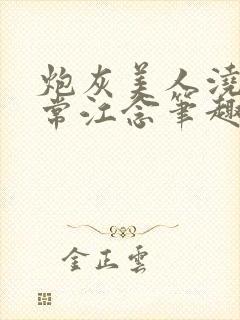 炮灰美人浇
常江念笔趣
金正雲